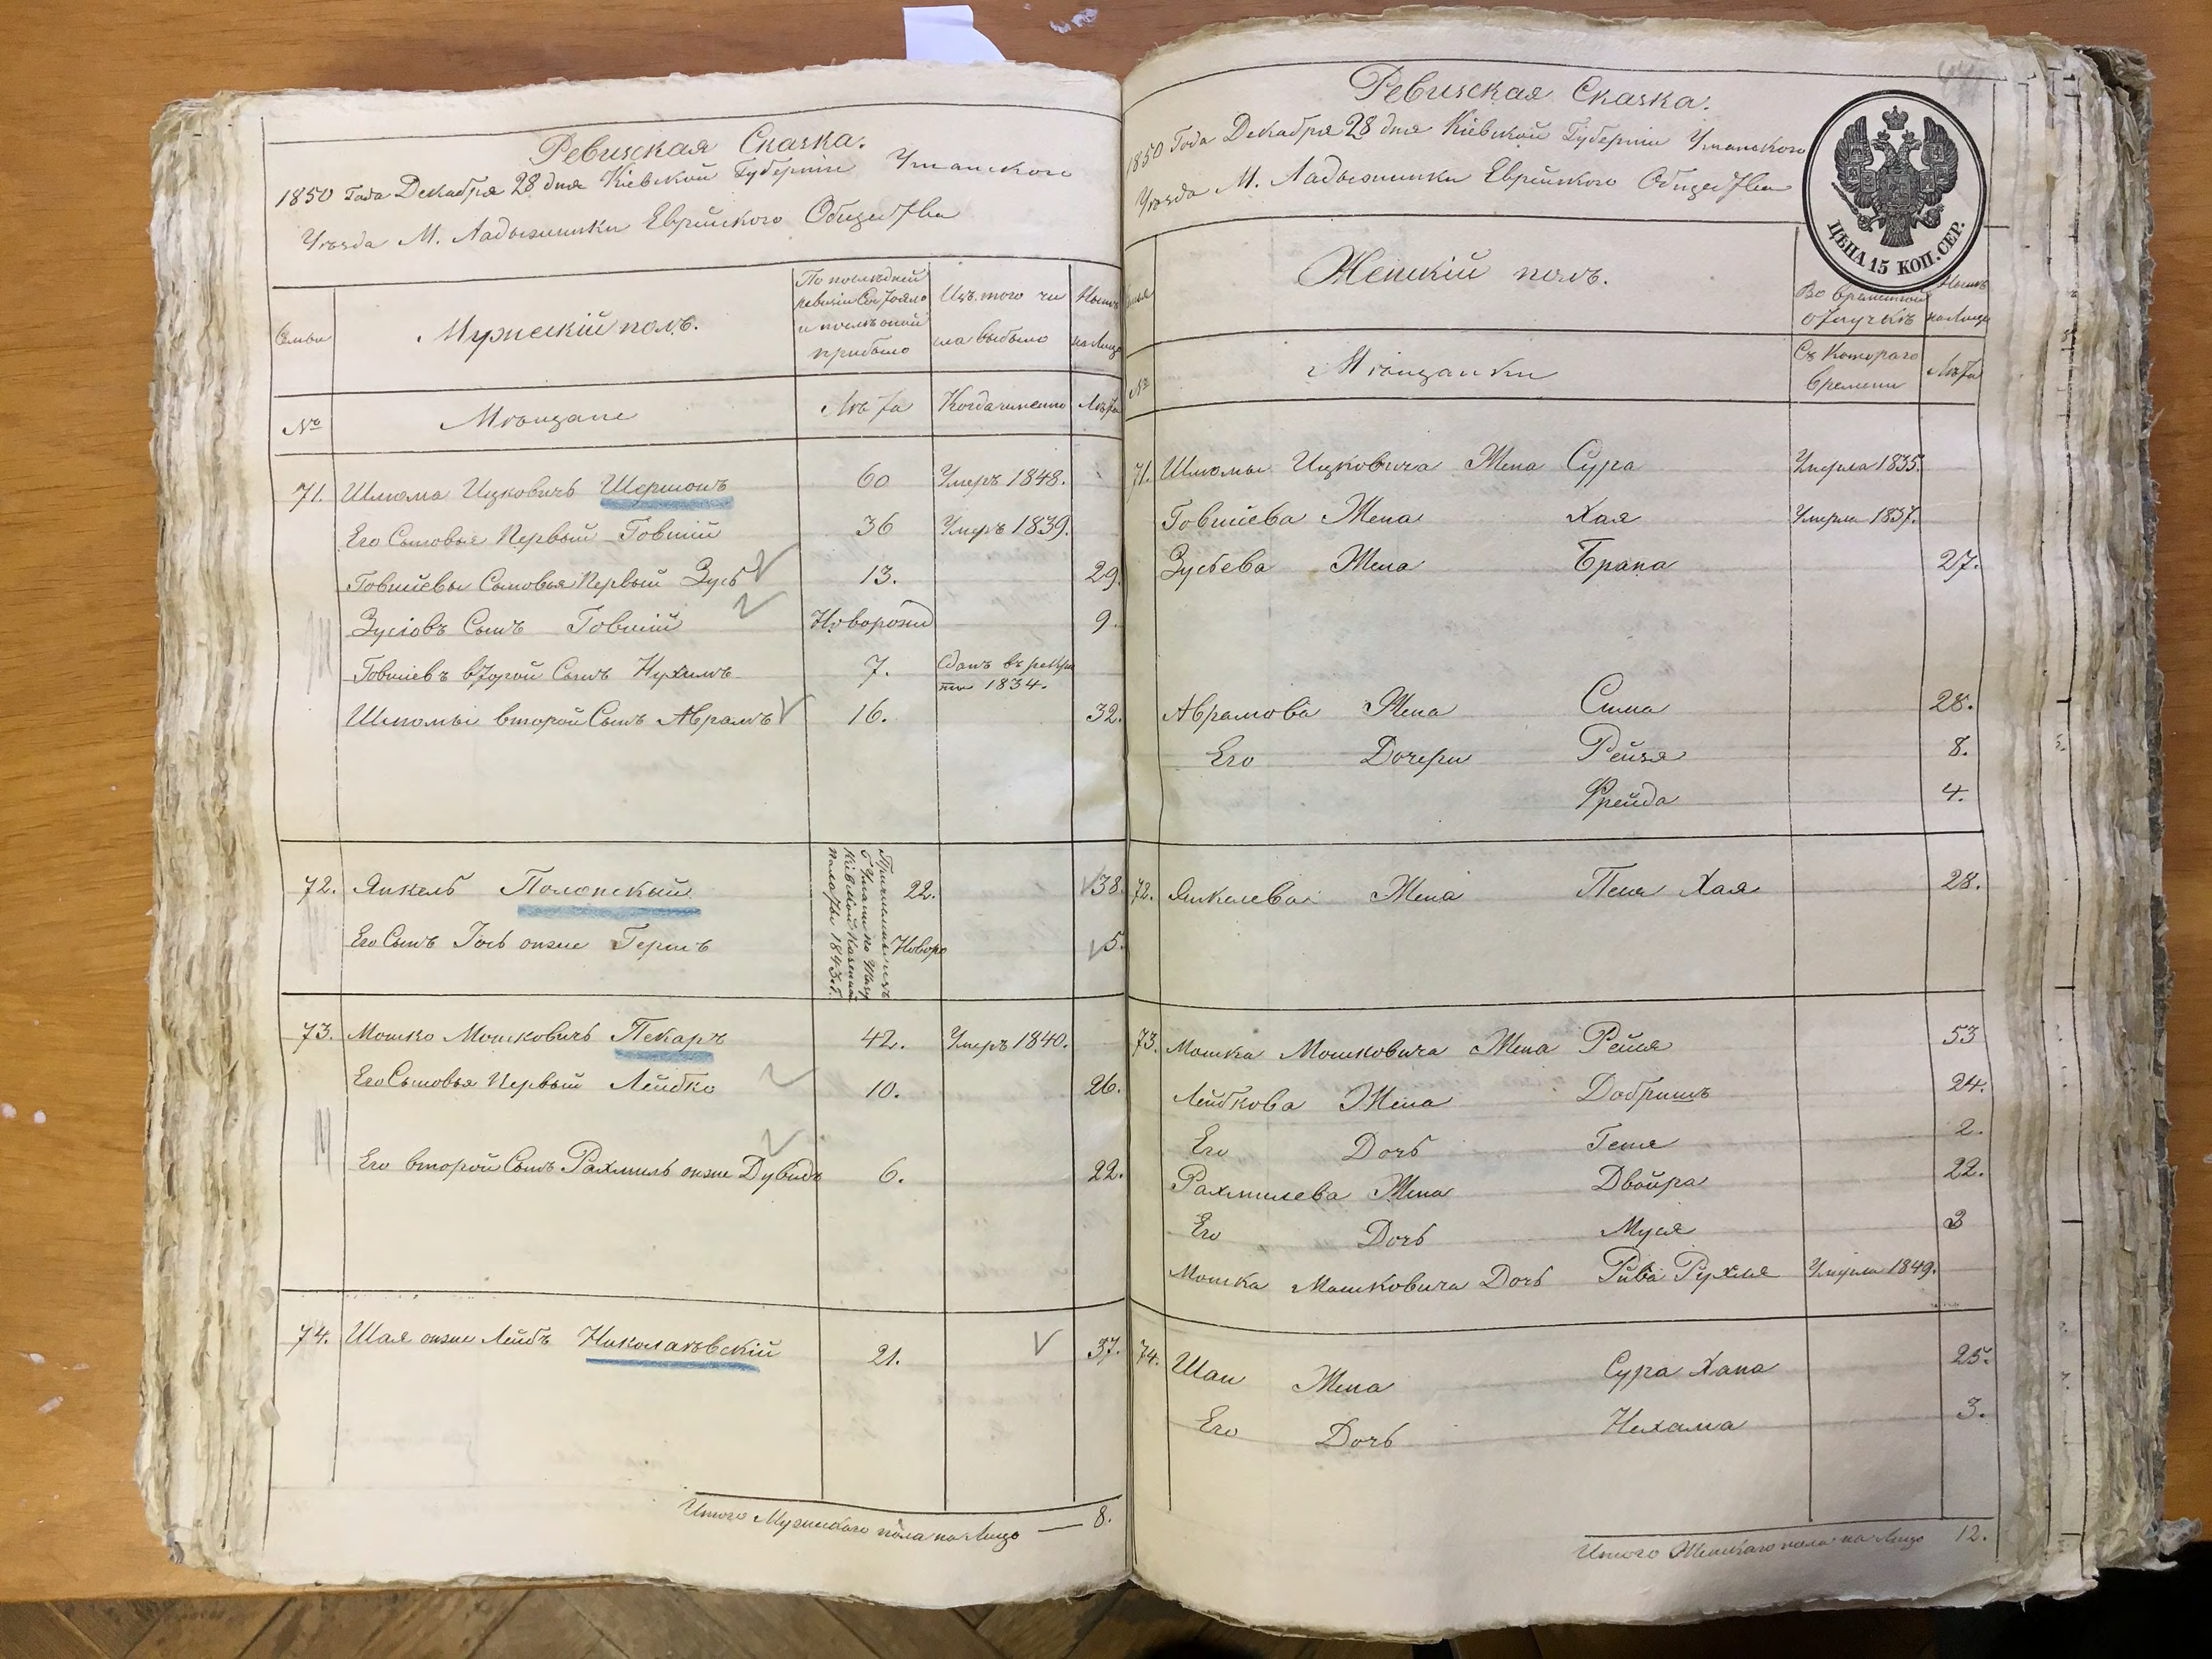 Ревизская Сказка.
1850 Года Декабря 28 дня Кіевской Губерніи Уманского
Уезда М. Ладыжинки Еврейского Общества
Семьи
Мужескій полъ.
По последней
ревизіи Состояло
и после оной
прибыло
Изъ того чи
сла выбыло
Ныне
на Лицо
№
Мещане
Лета
Когда именно
Лета
71. Шлиома Ицковичъ Шермонъ 60 Умеръ 1848.
Его Сыновья Первый Говшій 36 Умеръ 1839.
Говшіевы Сыновья Первый Зусь 13. 29.
Зусіовъ Сынъ Говшій Новорожд 9.
Говшіевъ второй Сынъ Нухимъ 7. Сданъ въ рекру
ты 1834.
Шлиомы второй Сынъ Аврамъ 16. 32.
72. Янкель Полонскый 22. 38.
Причисленъ изъ
Г. Умани по Указу
Кіевской Казенной
Палаты 1843 г.
Его Сынъ Іось онже Гершъ Новоро 5.
73. Мошко Мошковичъ Пекаръ 42. Умеръ 1840.
Его Сыновья Первый Лейбко 10. 26.
Его второй Сынъ Рахмиль онже Дувидъ 6. 22.
74. Шая онже Лейбъ Николаевскій 21. 37.
Итого Мужескаго пола на Лицо — 8.
Ревизская Сказка.
1850 Года Декабря 28 дня Кіевской Губерніи Уманского
Уезда М. Ладыжинки Еврейского Общества
ЦѢНА 15 КОП. СЕР.
Семья
Женскій полъ.
Во временной
отлучкѣ
Ныне
на Лицо
№
Мещанки
Съ Котораго
времени
Лета
71. Шлиомы Ицковича Жена Сура Умерла 1835.
Говшіева Жена Хая Умерла 1837.
Зусьева Жена Брана 27.
Аврамова Жена Сима 28.
Его Дочери Рейзя 8.
Фрейда 4.
72. Янкелева Жена Песя Хая 28.
73. Мошка Мошковича Жена Рейзя 53
Лейбкова Жена Добришъ 24.
Его Дочь Геня 2.
Рахмилева Жена Двойра 22.
Его Дочь Муся 3
Мошка Мошковича Дочь Рива Рухля Умерла 1849.
74. Шаи Жена Сура Хана 25.
Его Дочь Нехама 3.
Итого Женскаго пола на Лицо 12.